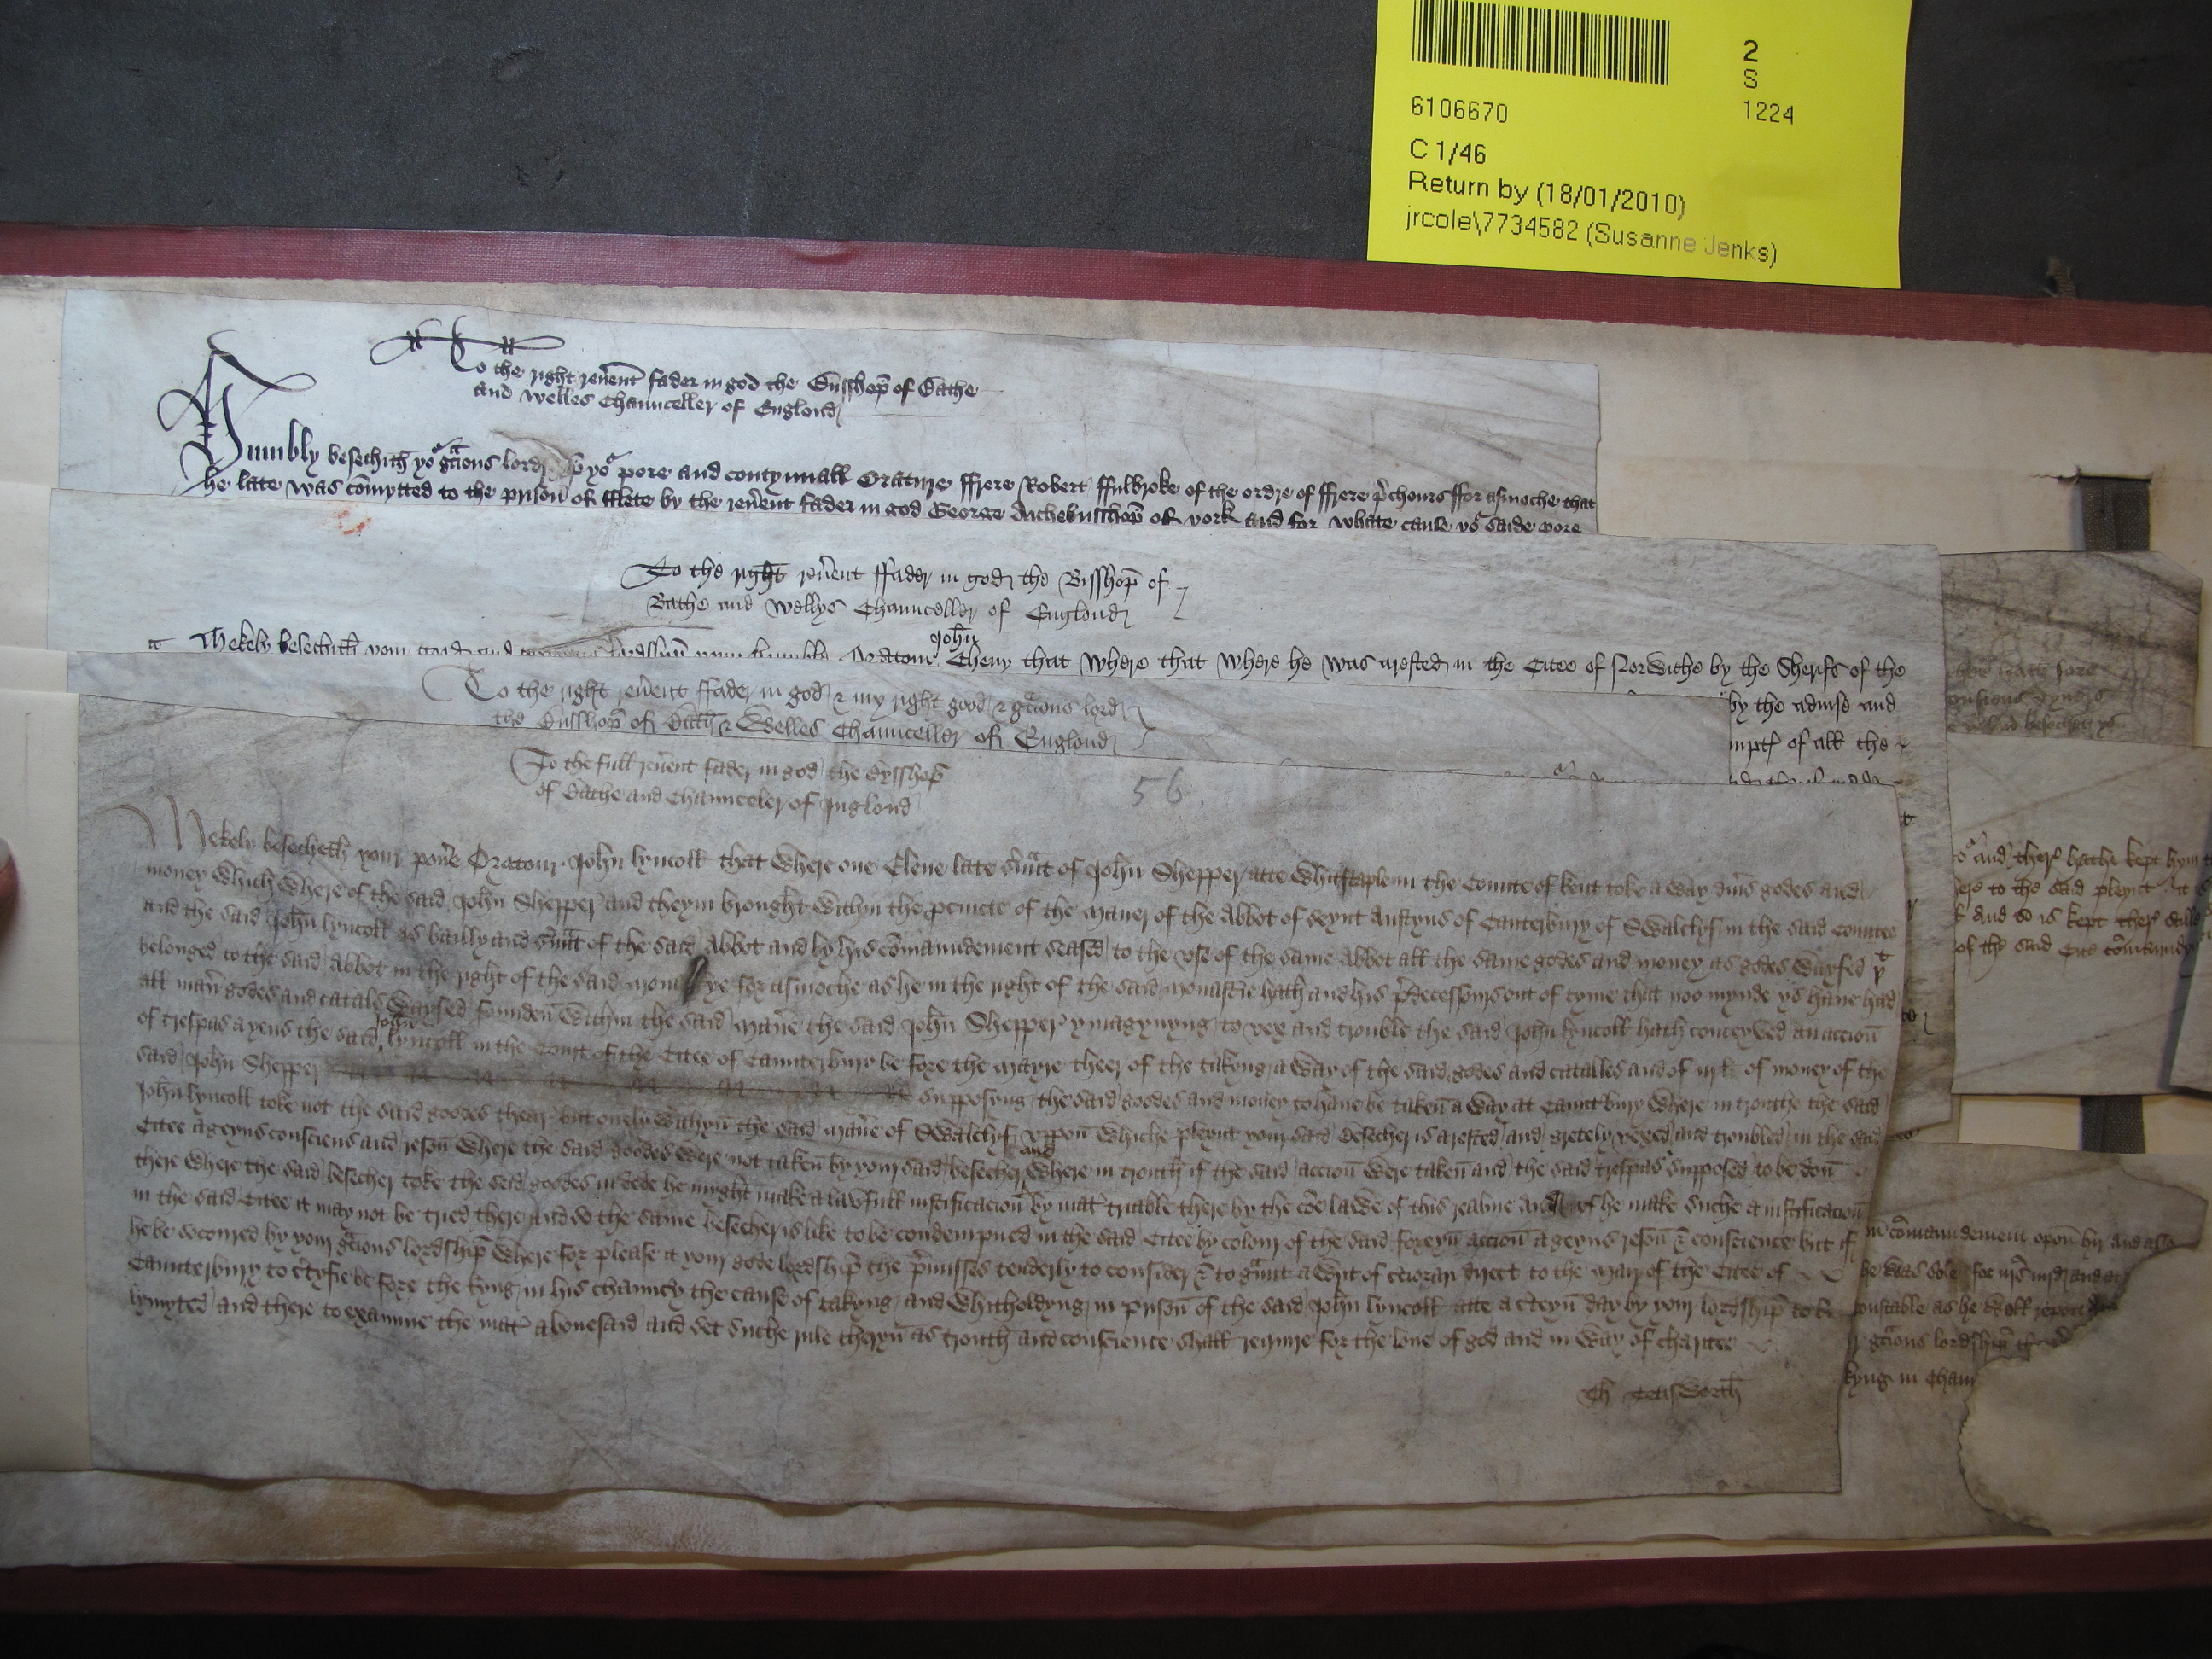 2
S
6106670
1224
C 1/46
Return by (18/01/2010)
jrcole\7734582 (Susanne Jenks)
To the right reuent fader in god the Busshop of Bathe
and Welles Chaunceller of Englond
Humbly besechith yor gracious lord yor pore and contynuall Orature ffrere Robert ffulbroke of the ordre of ffrere prchours ffor asmoche that
he late was comytted to the prison of fflete by the reuent fader in god George Archebusshop of york and for whate cause yor saide pore
To the right reuent ffader in god the Bisshop of
Bathe and Wellys Chaunceller of Englond
Mekely besechith your humble Oratour John Cheny that where that where he was arested in the Citee of Norwiche by the Sherifs of the
by the aduise and
of all the
To the right reuent ffader in god & my right good & gracious lord
the Busshop of Bath & Welles Chaunceller of Englond
To the full reuent fader in god the Bysshop
of Bathe and Chaunceler of Inglond
56.
Mekely besecheth your pouer Oratour John lyncoll that where one Elene late seruant of John Shepper atte Whitstaple in the Comite of kent toke a way diuers godes and
money which where of the said John Shepper and theym brought within the precincte of the maner of the Abbot of seynt Austyns of Canterbury of Swalclyf in the said Countee
and the said John lyncoll as bailly and seruant of the said Abbot and by his comaundement seased to the vse of the same Abbot all the same godes and money as godes wayfed
belonged to the said Abbot in the right of the said for asmoche as he in the right of the said monasterie hath and his predecessours out of tyme that noo mynde ys haue had
all maner godes and catals wayfed founden within the said maner the said John Shepper ymagynyng to vex and trouble the said John lyncoll hath conceyued an accion
of trespas ayens the said John lyncoll in the Court of the Citee of Caunterbury be fore the mayre theer of the takyng a way of the said godes and catalles and of of money of the
said John Shepper supposyng the said goodes and money to haue be taken a way at Caunterbury where in trouthe the said
John lyncoll toke not the said goodes thear but onely withyn the said maner of Swalclyf vppon whiche pleynt your said besecher is arested and gretely vexed and troubled in the said
Citee ageyns consciens and reson where the said goodes were not taken by your said besecher and where in trouth if the said accion were taken and the said trespas supposed to be don
there where the said besecher toke the said goodes in dede he myght make a lawfull iustificacion by mater triable there by the coe lawe of this realme And if he make suche a iustificacion
in the said Citee it may not be tried there and so the same besecher is like to be condempned in the said Citee by colour of the said foreyn accion ageyns reson & conscience but if
he be socoured by your gracious lordship Where for please it your gode lordship the premisses tenderly to consider & to graunt a writ of cciorari direct to the mair of the Citee of
Caunterbury to certyfie be fore the kyng in his chauncery the cause of takyng and whitholdyng in prison of the said John lyncoll atte a certeyn day by your lordship to be
lymyted and there to examine the mater abouesaid and set suche rule theryn as trouth and conscience shall require for the loue of god and in way of charitee
and ther hathe kept hym
to the said pleynt
And so is kept ther
of the said
comaundement opon hir and also
he was sole for
as he
gracious lordship
kyng in Chaun